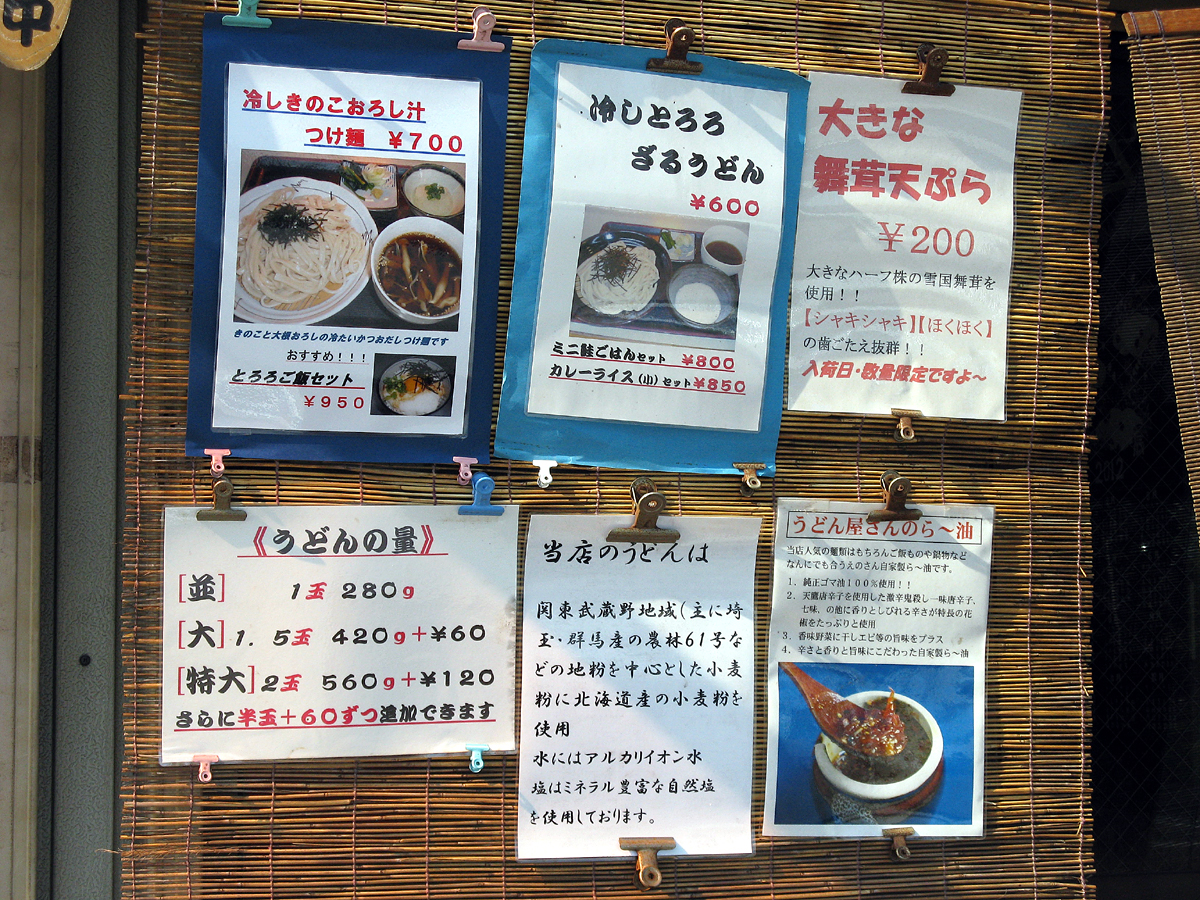 中
冷しきのこおろし汁
つけ麺 ￥700
きのこと大根おろしの冷たいかつおだしつけ麺です
おすすめ！！！
とろろご飯セット
￥950
冷しとろろ
ざるうどん
￥600
ミニ鮭ごはんセット ￥800
カレーライス（小）セット￥850
大きな
舞茸天ぷら
￥200
大きなハーフ株の雪国舞茸を
使用！！
【シャキシャキ】【ほくほく】
の歯ごたえ抜群！！
入荷日・数量限定ですよ～
《うどんの量》
［並］ 1玉 280g
［大］1．5玉 420g＋￥60
［特大］2玉 560g＋￥120
さらに半玉＋60ずつ追加できます
当店のうどんは
関東武蔵野地域（主に埼
玉・群馬産の農林61号な
どの地粉を中心とした小麦
粉に北海道産の小麦粉を
使用
水にはアルカリイオン水
塩はミネラル豊富な自然塩
を使用しております。
うどん屋さんのら～油
当店人気の麺類はもちろんご飯ものや鍋物など
なんにでも合うえのさん自家製ら～油です。
1．純正ゴマ油100％使用！！
2．天鷹唐辛子を使用した激辛鬼殺し一味唐辛子、
七味、の他に香りとしびれる辛さが特長の花
椒をたっぷりと使用
3．香味野菜に干しエビ等の旨味をプラス
4．辛さと香りと旨味にこだわった自家製ら～油